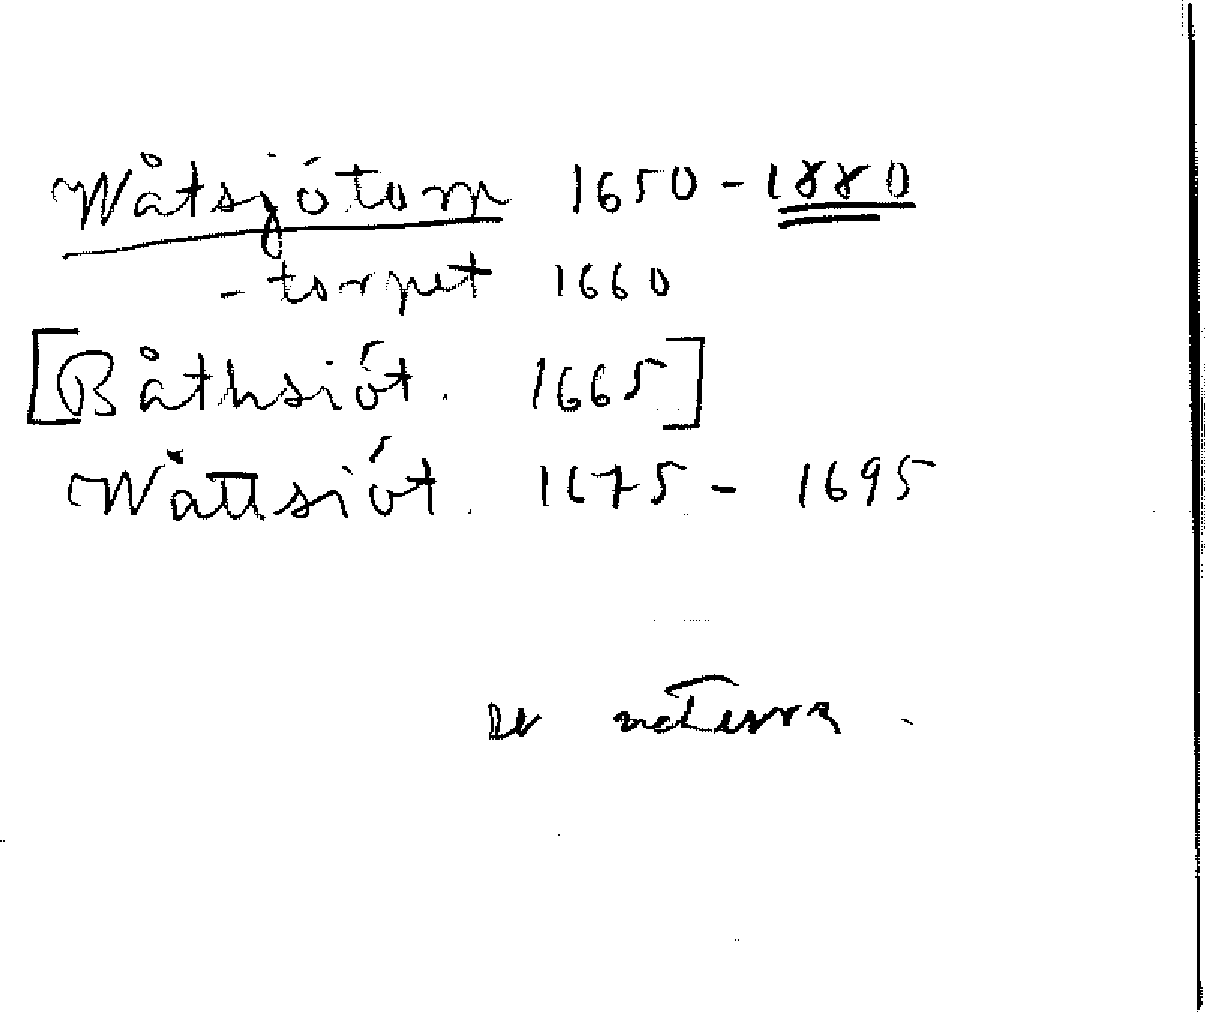 Wåtsjötorp 1650 - 1880
- torpet 1660
[Båthsiöt. 1665]
Wåttsiöt. 1675 - 1695